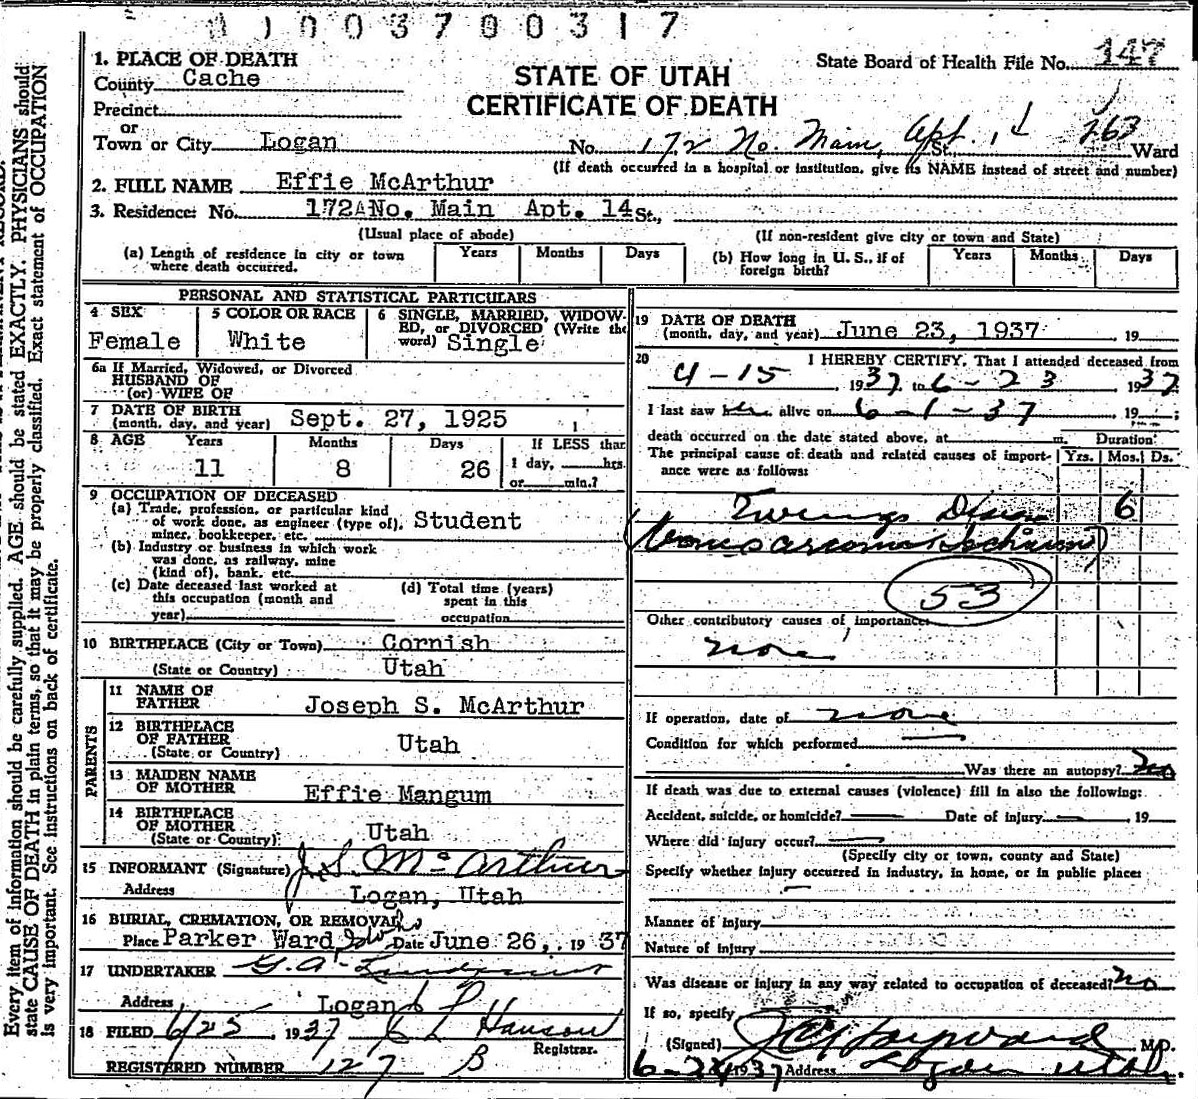 1003700317
1. PLACE OF DEATH
County Cache
State Board of Health File No. 147
STATE OF UTAH
CERTIFICATE OF DEATH
Precinct
or
Town or City Logan No. 172 No. Main, Apt. 1 St. 263 Ward
(If death occurred in a hospital or institution, give its NAME instead of street and number)
2. FULL NAME Effie McArthur
3. Residence: No. 172A No. Main Apt. 14 St.,
(Usual place of abode) (If non-resident give city or town and State)
(a) Length of residence in city or town where death occurred. Years Months Days (b) How long in U. S., if of foreign birth? Years Months Days
PERSONAL AND STATISTICAL PARTICULARS
4 SEX Female
5 COLOR OR RACE White
6 SINGLE, MARRIED, WIDOWED, or DIVORCED (Write the word) Single
6a If Married, Widowed, or Divorced
HUSBAND OF
(or) WIFE OF
7 DATE OF BIRTH
(month, day, and year) Sept. 27, 1925
8 AGE Years Months Days If LESS than
11 8 26 1 day, hrs.
or min.?
9 OCCUPATION OF DECEASED
(a) Trade, profession, or particular kind
of work done, as engineer (type of), Student
miner, bookkeeper, etc.
(b) Industry or business in which work
was done, as railway, mine
(kind of), bank, etc.
(c) Date deceased last worked at
this occupation (month and
year)
(d) Total time (years)
spent in this
occupation
10 BIRTHPLACE (City or Town) Cornish
(State or Country) Utah
PARENTS
11 NAME OF
FATHER Joseph S. McArthur
12 BIRTHPLACE
OF FATHER Utah
(State or Country)
13 MAIDEN NAME
OF MOTHER Effie Mangum
14 BIRTHPLACE
OF MOTHER Utah
(State or Country)
15 INFORMANT (Signature) J. S. McArthur
Address Logan, Utah
16 BURIAL, CREMATION, OR REMOVAL
Place Parker Ward, Idaho Date June 26, 1937
17 UNDERTAKER G. A.
Address Logan
18 FILED 6/25, 1937 Hanson
Registrar.
REGISTERED NUMBER 127 B
19 DATE OF DEATH
(month, day, and year) June 23, 1937 19
20 I HEREBY CERTIFY, That I attended deceased from
4-15 1937 to 6-23 1937
I last saw her alive on 6-1-37 19 ;
death occurred on the date stated above, at m.
Duration
The principal cause of death and related causes of importance were as follows: Yrs. Mos. Ds.
Ewings 6
53
Other contributory causes of importance:
none
If operation, date of none
Condition for which performed
Was there an autopsy? No
If death was due to external causes (violence) fill in also the following:
Accident, suicide, or homicide? Date of injury 19
Where did injury occur?
(Specify city or town, county and State)
Specify whether injury occurred in industry, in home, or in public place:
Manner of injury
Nature of injury
Was disease or injury in any way related to occupation of deceased? no
If so, specify
(Signed) Hayward M.D.
6-24 1937 Address Logan Utah.
Every item of information should be carefully supplied. AGE should be stated EXACTLY. PHYSICIANS should
state CAUSE OF DEATH in plain terms, so that it may be properly classified. Exact statement of OCCUPATION
is very important. See instructions on back of certificate.